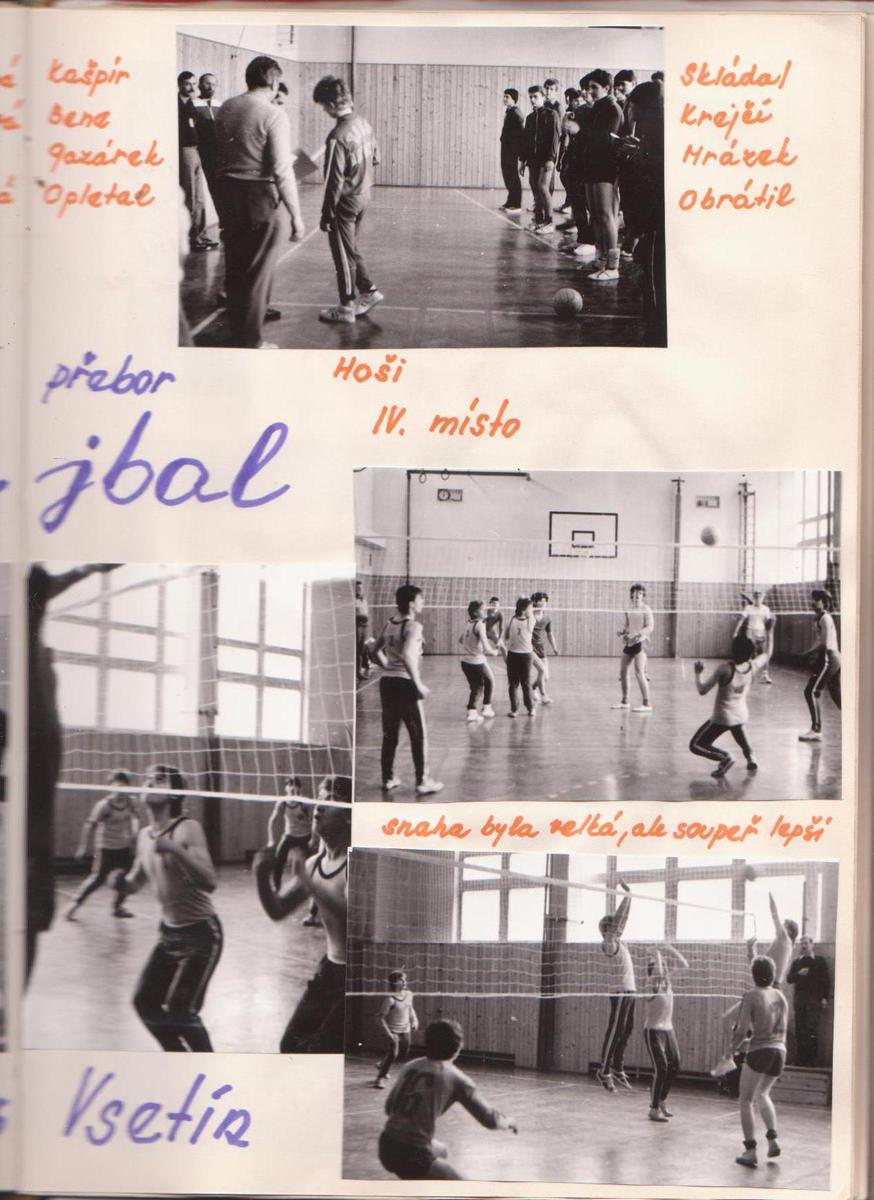 Kašpír
Bena
Gazárek
Opletal
Skládal
Krejčí
Mrázek
Obrátil
přebor
Hoši
IV. místo
jbal
snaha byla velká, ale soupeř lepší
Vsetín